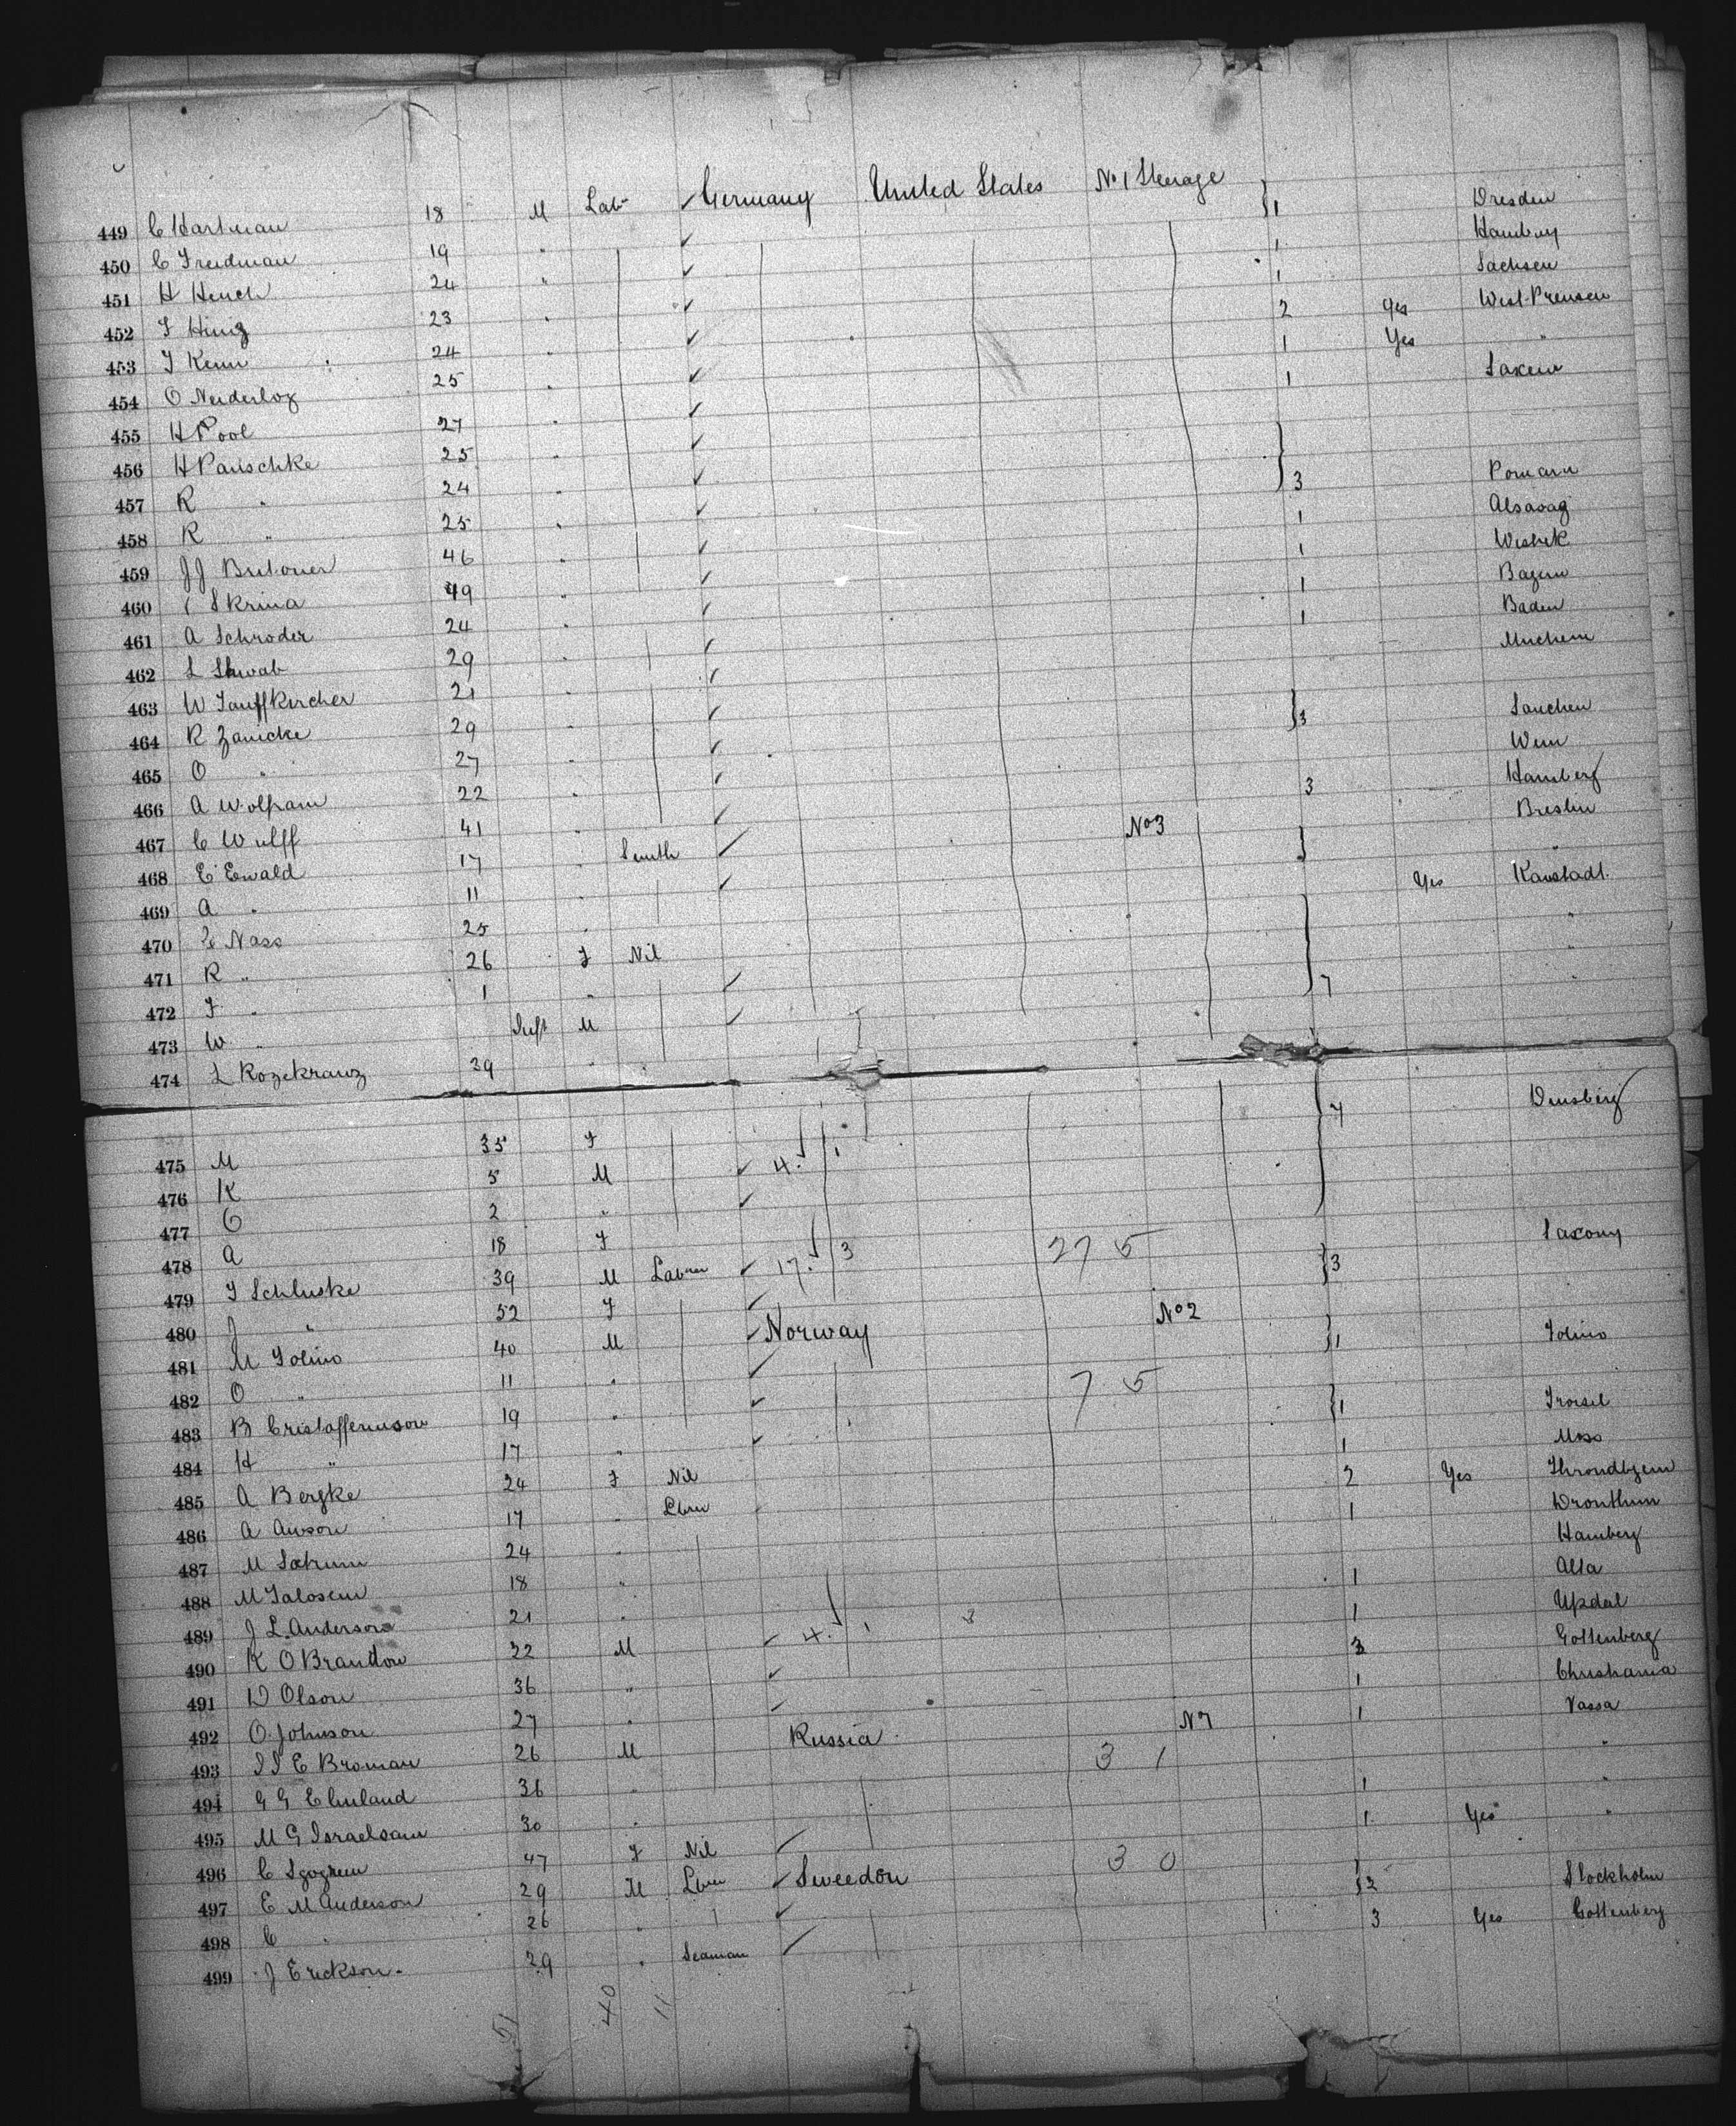 449 C Hartman 18 M Lab Germany United States No 1 Steerage 1 Dresden
450 C Freidman 19 " 1 Hamburg
451 H Hench 24 " 1 Sachsen
452 24 " 2 Yes West Preusen
453 J Kenn 24 " 1 Yes "
454 O Neiderloz 25 " 1 Saxen
455 H Pool 27 "
456 H Pauschke 25 "
457 R " 24 " 3 Pomarn
458 R " 25 " 1
459 J J 46 " 1
460 C Skrina 49 " 1 Bayern
461 A Schroder 24 " 1 Baden
462 L Shwab 29 " Munchen
463 W Tauffkircher 21 "
464 R Zanicke 29 " 3 Sauchen
465 O " 27 " Wein
466 A Wolfram 22 " 3 Hamberg
467 C Wulff 41 " No 3 Breslu
468 E Ewald 17 " Smith "
469 A " 11 " Yes Kaustadt
470 C Nass 25 " "
471 R " 26 F Nil "
472 F " 1 " 7 "
473 W " Inft M
474 L Rozekranz 39 "
475 M 35 F 7
476 K 5 M 4. 1
477 O 2 "
478 A 18 F Saxony
479 J Schluske 39 M Labrer 17. 3 27 5 3
480 J " 52 F
481 M Tolino 40 M Norway No 2 1 Tolino
482 O " 11 "
483 B Cristaffernson 19 " 7 5 1
484 H " 17 " 1 Moss
485 A Bergke 24 F Nil 2 Yes Throndhjem
486 A Anson 17 " Lbrer 1 Dronthim
487 M 24 " Hamberg
488 M 18 " 1 Alta
489 J L. Anderson 21 " 1 Updal
490 K O Brandon 22 M 4. 1 3 Gottenberg
491 D Olson 36 " 1 Christiania
492 O. Johnson 27 " 1 Vassa
493 E Broman 26 M Russia No 1 3 1 "
494 G G Elmlund 36 " 1 "
495 M G Israelsom 30 " 1 Yes "
496 C 47 F Nil
497 E M Anderson 29 M Lbrer Sweedon 3 0 2 Stockholm
498 C " 26 " 3 Yes Gottenberg
499 J Erickson. 29 " Seaman
51 40 11